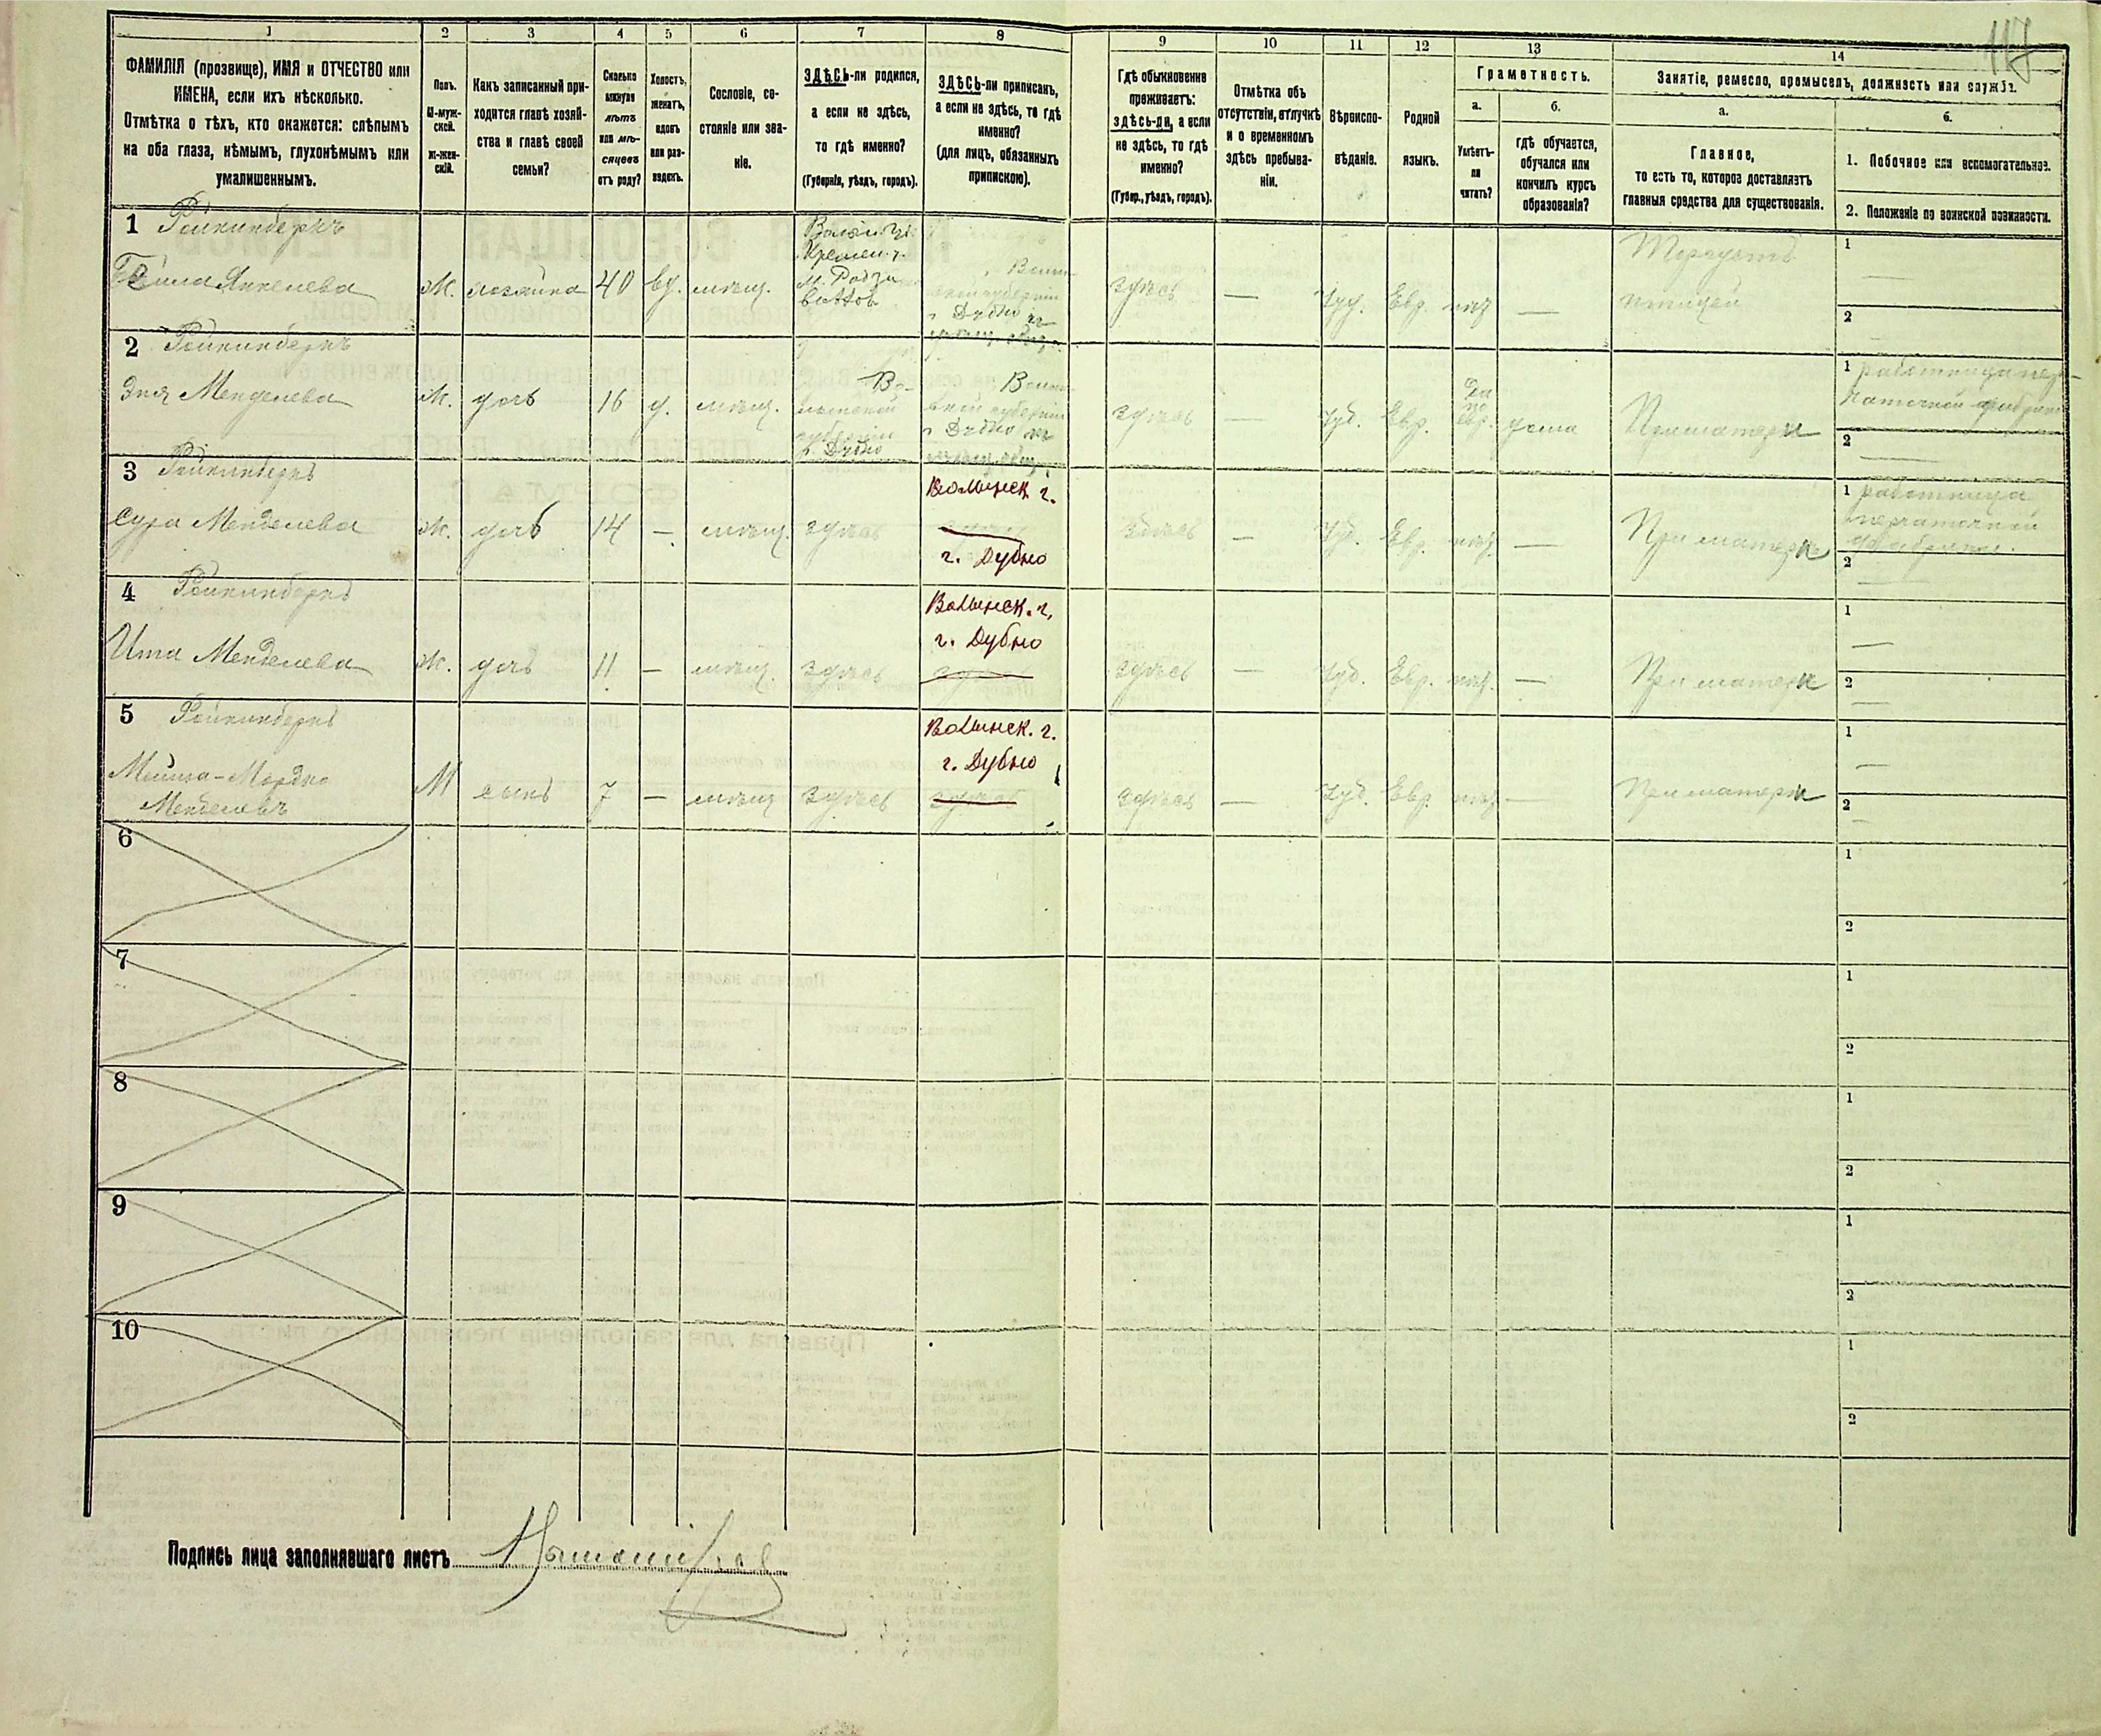 117
1 2 3 4 5 6 7 8 9 10 11 12 13 14
ФАМИЛІЯ (прозвище), ИМЯ и ОТЧЕСТВО или
ИМЕНА, если ихъ нѣсколько.
Отмѣтка о тѣхъ, кто окажется: слѣпымъ
на оба глаза, нѣмымъ, глухонѣмымъ или
умалишеннымъ.
Полъ.
М-муж-
ской.
Ж-жен-
скій.
Какъ записанный при-
ходится главѣ хозяй-
ства и главѣ своей
семьи?
Сколько
минуло
лѣтъ
или мѣ-
сяцевъ
отъ роду?
Холостъ,
женатъ,
вдовъ
или раз-
веденъ.
Сословіе, со-
стояніе или зва-
ніе.
ЗДѢСЬ-ли родился,
а если не здѣсь,
то гдѣ именно?
(Губернія, уѣздъ, городъ).
ЗДѢСЬ-ли приписанъ,
а если не здѣсь, то гдѣ
именно?
(для лицъ, обязанныхъ
припискою).
Гдѣ обыкновенно
проживаетъ:
здѣсь-ли, а если
не здѣсь, то гдѣ
именно?
(Губер., уѣздъ, городъ).
Отмѣтка объ
отсутствіи, отлучкѣ
и о временномъ
здѣсь пребыва-
ніи.
Вѣроиспо-
вѣданіе.
Родной
языкъ.
Грамотность.
а.
Умѣетъ-
ли
читать?
б.
гдѣ обучается,
обучался или
кончилъ курсъ
образованія?
Занятіе, ремесло, промыселъ, должность или служба.
а.
Главное,
то есть то, которое доставляетъ
главныя средства для существованія.
б.
1. Побочное или вспомогательное.
2. Положеніе по воинской повинности.
1
Янкелева
Ж. хозяйка 40 вд. мѣщ.
Кремен. у.
здѣсь — Іуд. Евр. —
Торгуетъ
птицей
1
2
2
Менделева
Ж. дочь 16 д. мѣщ.
Во-
лынской
губерніи
г. Дубно
Волын-
ской губерніи
г. Дубно
здѣсь — Іуд. Евр. дома При матери
1 работница пер-
чаточной фабрики
2
3
Сура Менделева
Ж. дочь 14 — мѣщ. здѣсь
Волынск. г.
г. Дубно
здѣсь — Іуд. Евр. — При матери
1 работница
перчаточной
фабрики.
2
4
Ита Менделева
Ж. дочь 11 — мѣщ. здѣсь
Волынск. г.
г. Дубно
здѣсь
здѣсь — Іуд. Евр. — При матери
1
2
5
Мошка-Мордко
Менделевъ
М сынъ 7 — мѣщ здѣсь
Волынск. г.
г. Дубно
здѣсь
здѣсь — Іуд. Евр. — При матери
1
2
6
1
2
7
1
2
8
1
2
9
1
2
10
1
2
Подпись лица заполнявшаго листъ